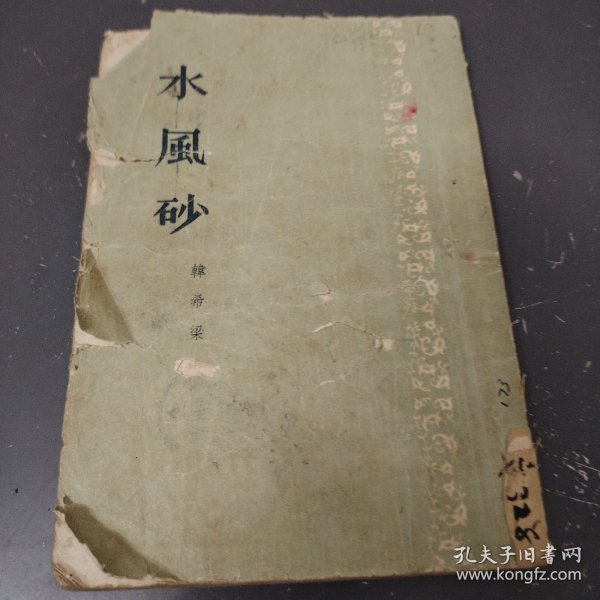 水風砂
韓希梁
123
328
孔夫子旧書网
www.kongfz.com